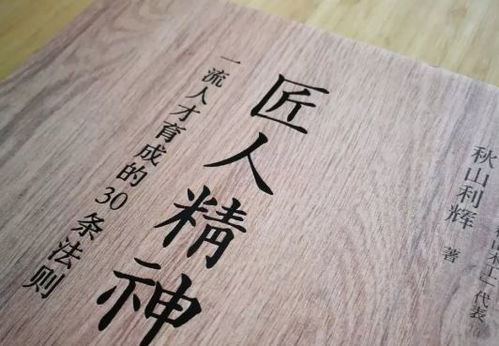 匠人精神
一流人才育成的30条法则
秋山利辉 著
木工」代表